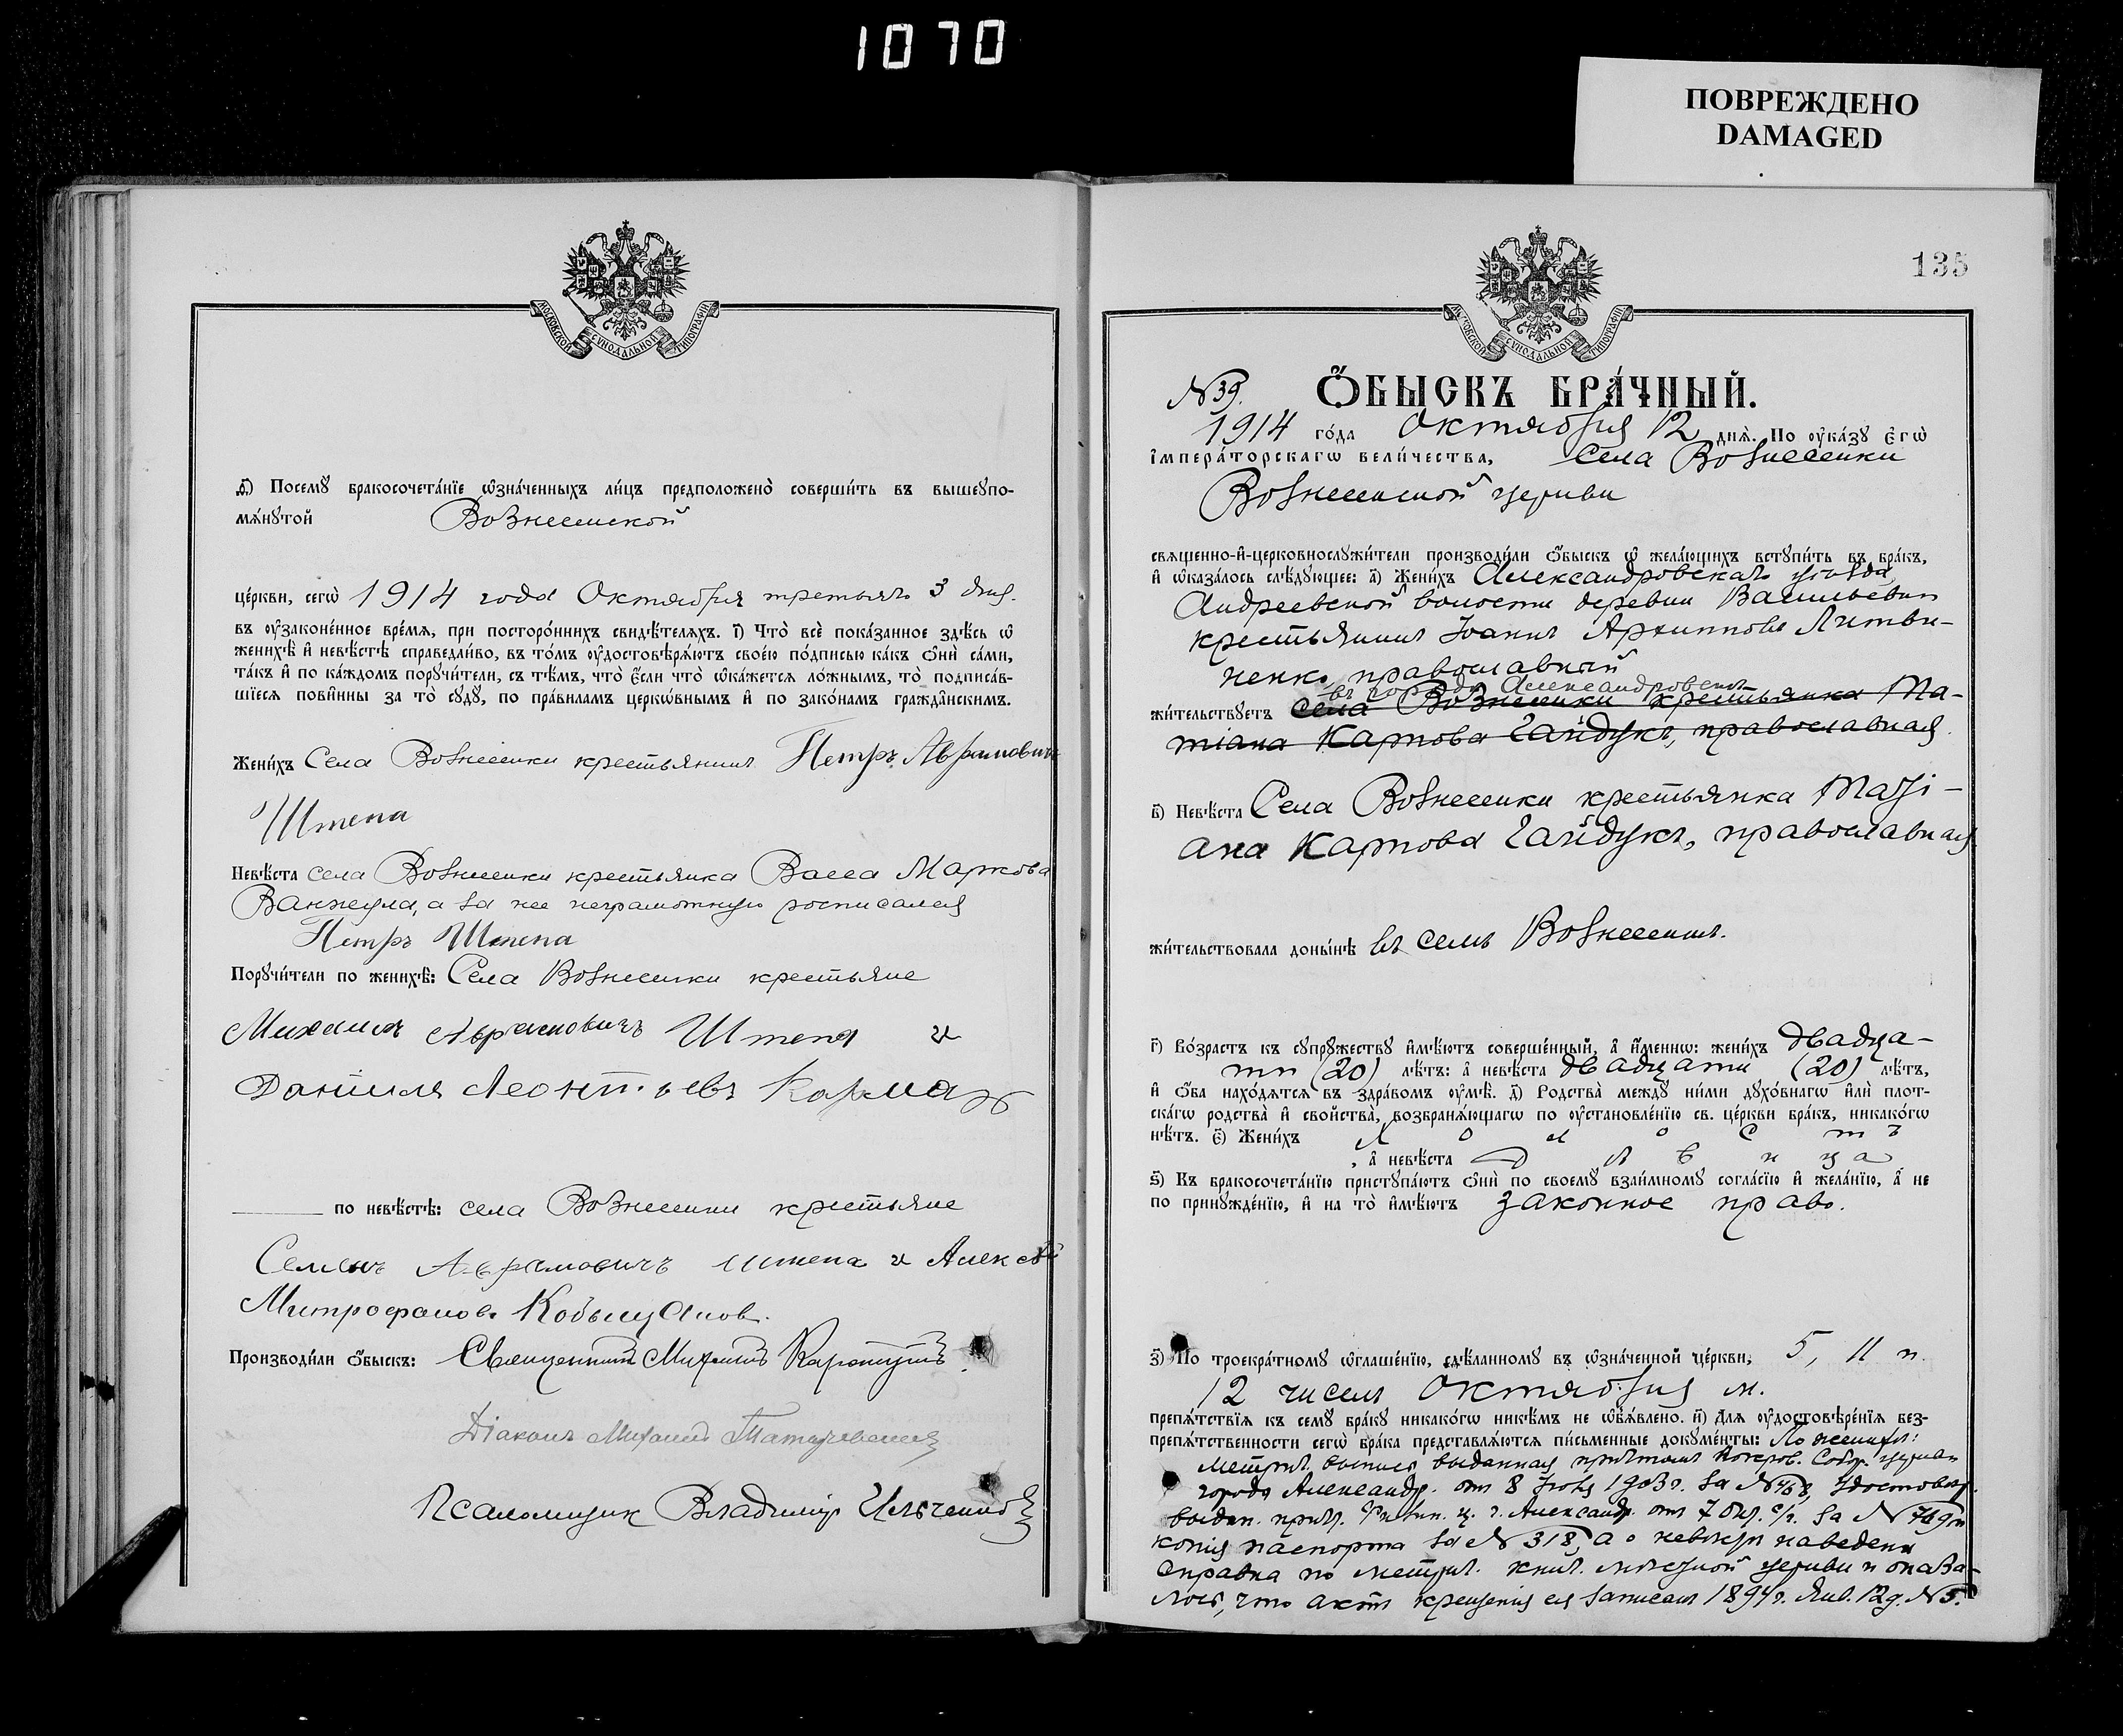 1070
ПОВРЕЖДЕНО
DAMAGED
МОСКОВСКОЙ СѴНОДАЛЬНОЙ ТИПОГРАФІИ
Посемꙋ бракосочета́нїе ѡ҆зна́ченныхъ ли́цъ предположено̀ соверши́ть въ вышеꙋпо-
мѧ́нꙋтой Вознесенской
це́ркви, сегѡ̀ 1914 года Октября третьяго 3 дня.
въ ᲂу҆зако́ненное вре́мѧ, при посторо́ннихъ свидѣ́телѧхъ. і҃) Что̀ всѐ пока́занное здѣ́сь ѡ҆
женихѣ̀ и҆ невѣ́стѣ справедли́во, въ то́мъ ᲂу҆достовѣрѧ́ютъ свое́ю по́дписью ка́къ ѻ҆нѝ са́ми,
та́къ и҆ по ка́ждомъ порꙋчи́тели, съ тѣ́мъ, что̀ є҆́сли что̀ ѡ҆ка́жетсѧ ло́жнымъ, то̀ подписа́в-
шїесѧ пови́нны за то̀ сꙋдꙋ̀, по пра́виламъ церко́внымъ и҆ по зако́намъ гражда́нскимъ.
Жени́хъ Села Вознесенки крестьянинъ Петръ Аврамовичъ
Штепа
Невѣ́ста села Вознесенки крестьянка Васса Маркова
а за нее неграмотную росписался
Петръ Штепа
Порꙋчи́тели по женихѣ̀: Села Вознесенки крестьяне
Михаилъ Аврамовичъ Штепа и
Данiилъ Леонтьевъ
по невѣ́стѣ: села Вознесенки крестьяне
Семенъ Аврамовичъ Штепа и Алексѣй
Митрофановъ
Производи́ли ѻ҆́быскъ: Священникъ Михаилъ
Дiаконъ Михаилъ
Псаломщик Владимiр Ильченко
135
МОСКОВСКОЙ СѴНОДАЛЬНОЙ ТИПОГРАФІИ
№ 39. Ѻ҆́БЫСКЪ БРА́ЧНЫЙ.
1914 го́да Октября 12 днѧ̀. По ᲂу҆ка́зꙋ є҆гѡ̀
і҆мпера́торскагѡ вели́чества, Села Вознесенки
Вознесенской церкви
свѧще́нно-и҆-церковнослꙋжи́тели производи́ли ѻ҆́быскъ ѡ҆ жела́ющихъ встꙋпи́ть въ бра́къ,
и҆ ѡ҆каза́лось слѣ́дꙋющее: а҃) Жени́хъ Александровскаго уѣзда
Андреевской волости деревни Васильевки
крестьянинъ Iоаннъ Архиппова Литви-
ненко, православный
въ городѣ Александровскѣ
жи́тельствꙋетъ села Вознесенки крестьянка Ма-
тiана Карпова Гайдукъ, православная.
в҃) Невѣ́ста Села Вознесенки крестьянка Марi-
ана Карпова Гайдукъ, православная
жи́тельствовала доны́нѣ въ селѣ Вознесенкѣ.
г҃) Во́зрастъ къ сꙋпрꙋ́жествꙋ и҆мѣ́ютъ соверше́нный, а҆ и҆́менно: жени́хъ двадца-
ти (20) лѣ́тъ: а҆ невѣ́ста двадцати (20) лѣ́тъ,
и҆ ѻ҆́ба нахо́дѧтсѧ въ здра́вомъ ᲂу҆мѣ̀. д҃) Родства̀ междꙋ̀ ни́ми дꙋхо́внагѡ и҆лѝ плот-
ска́гѡ родства̀ и҆ свойства̀, возбранѧ́ющагѡ по ᲂу҆становле́нїю св. це́ркви бра́къ, никако́гѡ
нѣ́тъ. є҃) Жени́хъ холостъ
, а҆ невѣ́ста дѣвица
ѕ҃) Къ бракосочета́нїю пристꙋпа́ютъ ѻ҆нѝ по своемꙋ̀ взаи́мномꙋ согла́сїю и҆ жела́нїю, а҆ не
по принꙋжде́нїю, и҆ на то̀ и҆мѣ́ютъ законное право.
з҃) По троекра́тномꙋ ѡ҆глаше́нїю, сдѣ́ланномꙋ въ ѡ҆зна́ченной це́ркви, 5, 11 и
12 чиселъ Октября м.
препѧ́тствїѧ къ семꙋ̀ бра́кꙋ никако́гѡ никѣ́мъ не ѡ҆б̾ѧ́влено. и҃) Длѧ̀ ᲂу҆достовѣре́нїѧ без-
препѧ́тственности сегѡ̀ бра́ка представлѧ́ютсѧ пи́сьменные докꙋме́нты: По женихѣ:
метрич. выпись выданная причтомъ Покров. Собор. церкви
города Александр. от 8 1903 г. за № удостовѣр.
выдан. причт. ц. г. Александр. от 7 Окт. с/г. за № 769 и
копiя паспорта за № 318, а о невѣстѣ наведена
справка по метрич. книг. мѣстной церкви и оказа-
лось, что актъ крещенiя ея записанъ 1894 г. Янв. 12 д. № 5.